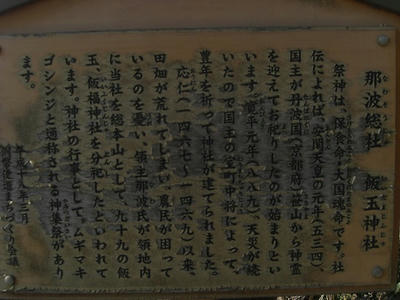 那波総社 飯玉神社
祭神は、保食命と大国魂命です。社
伝によれば、安閑天皇の元年(五三四)、
国主が丹波国(京都府)笹山から神霊
を迎えてお祀りしたのが始まりとい
います。寛平元年(八八九)、天災が続
いたので国主の室町中将によって、
豊年を祈って神社が建てられました。
応仁(一四六七〜一四六九)以来、
田畑が荒れてしまい、農民が困って
いるのを憂い、領主那波氏が領地内
に当社を総本山として、九十九の飯
玉、飯福神社を分祀したといわれて
います。神社の行事として、ムギマキ
ゴシンジと通称される神集祭があり
ます。
平成十二年三月